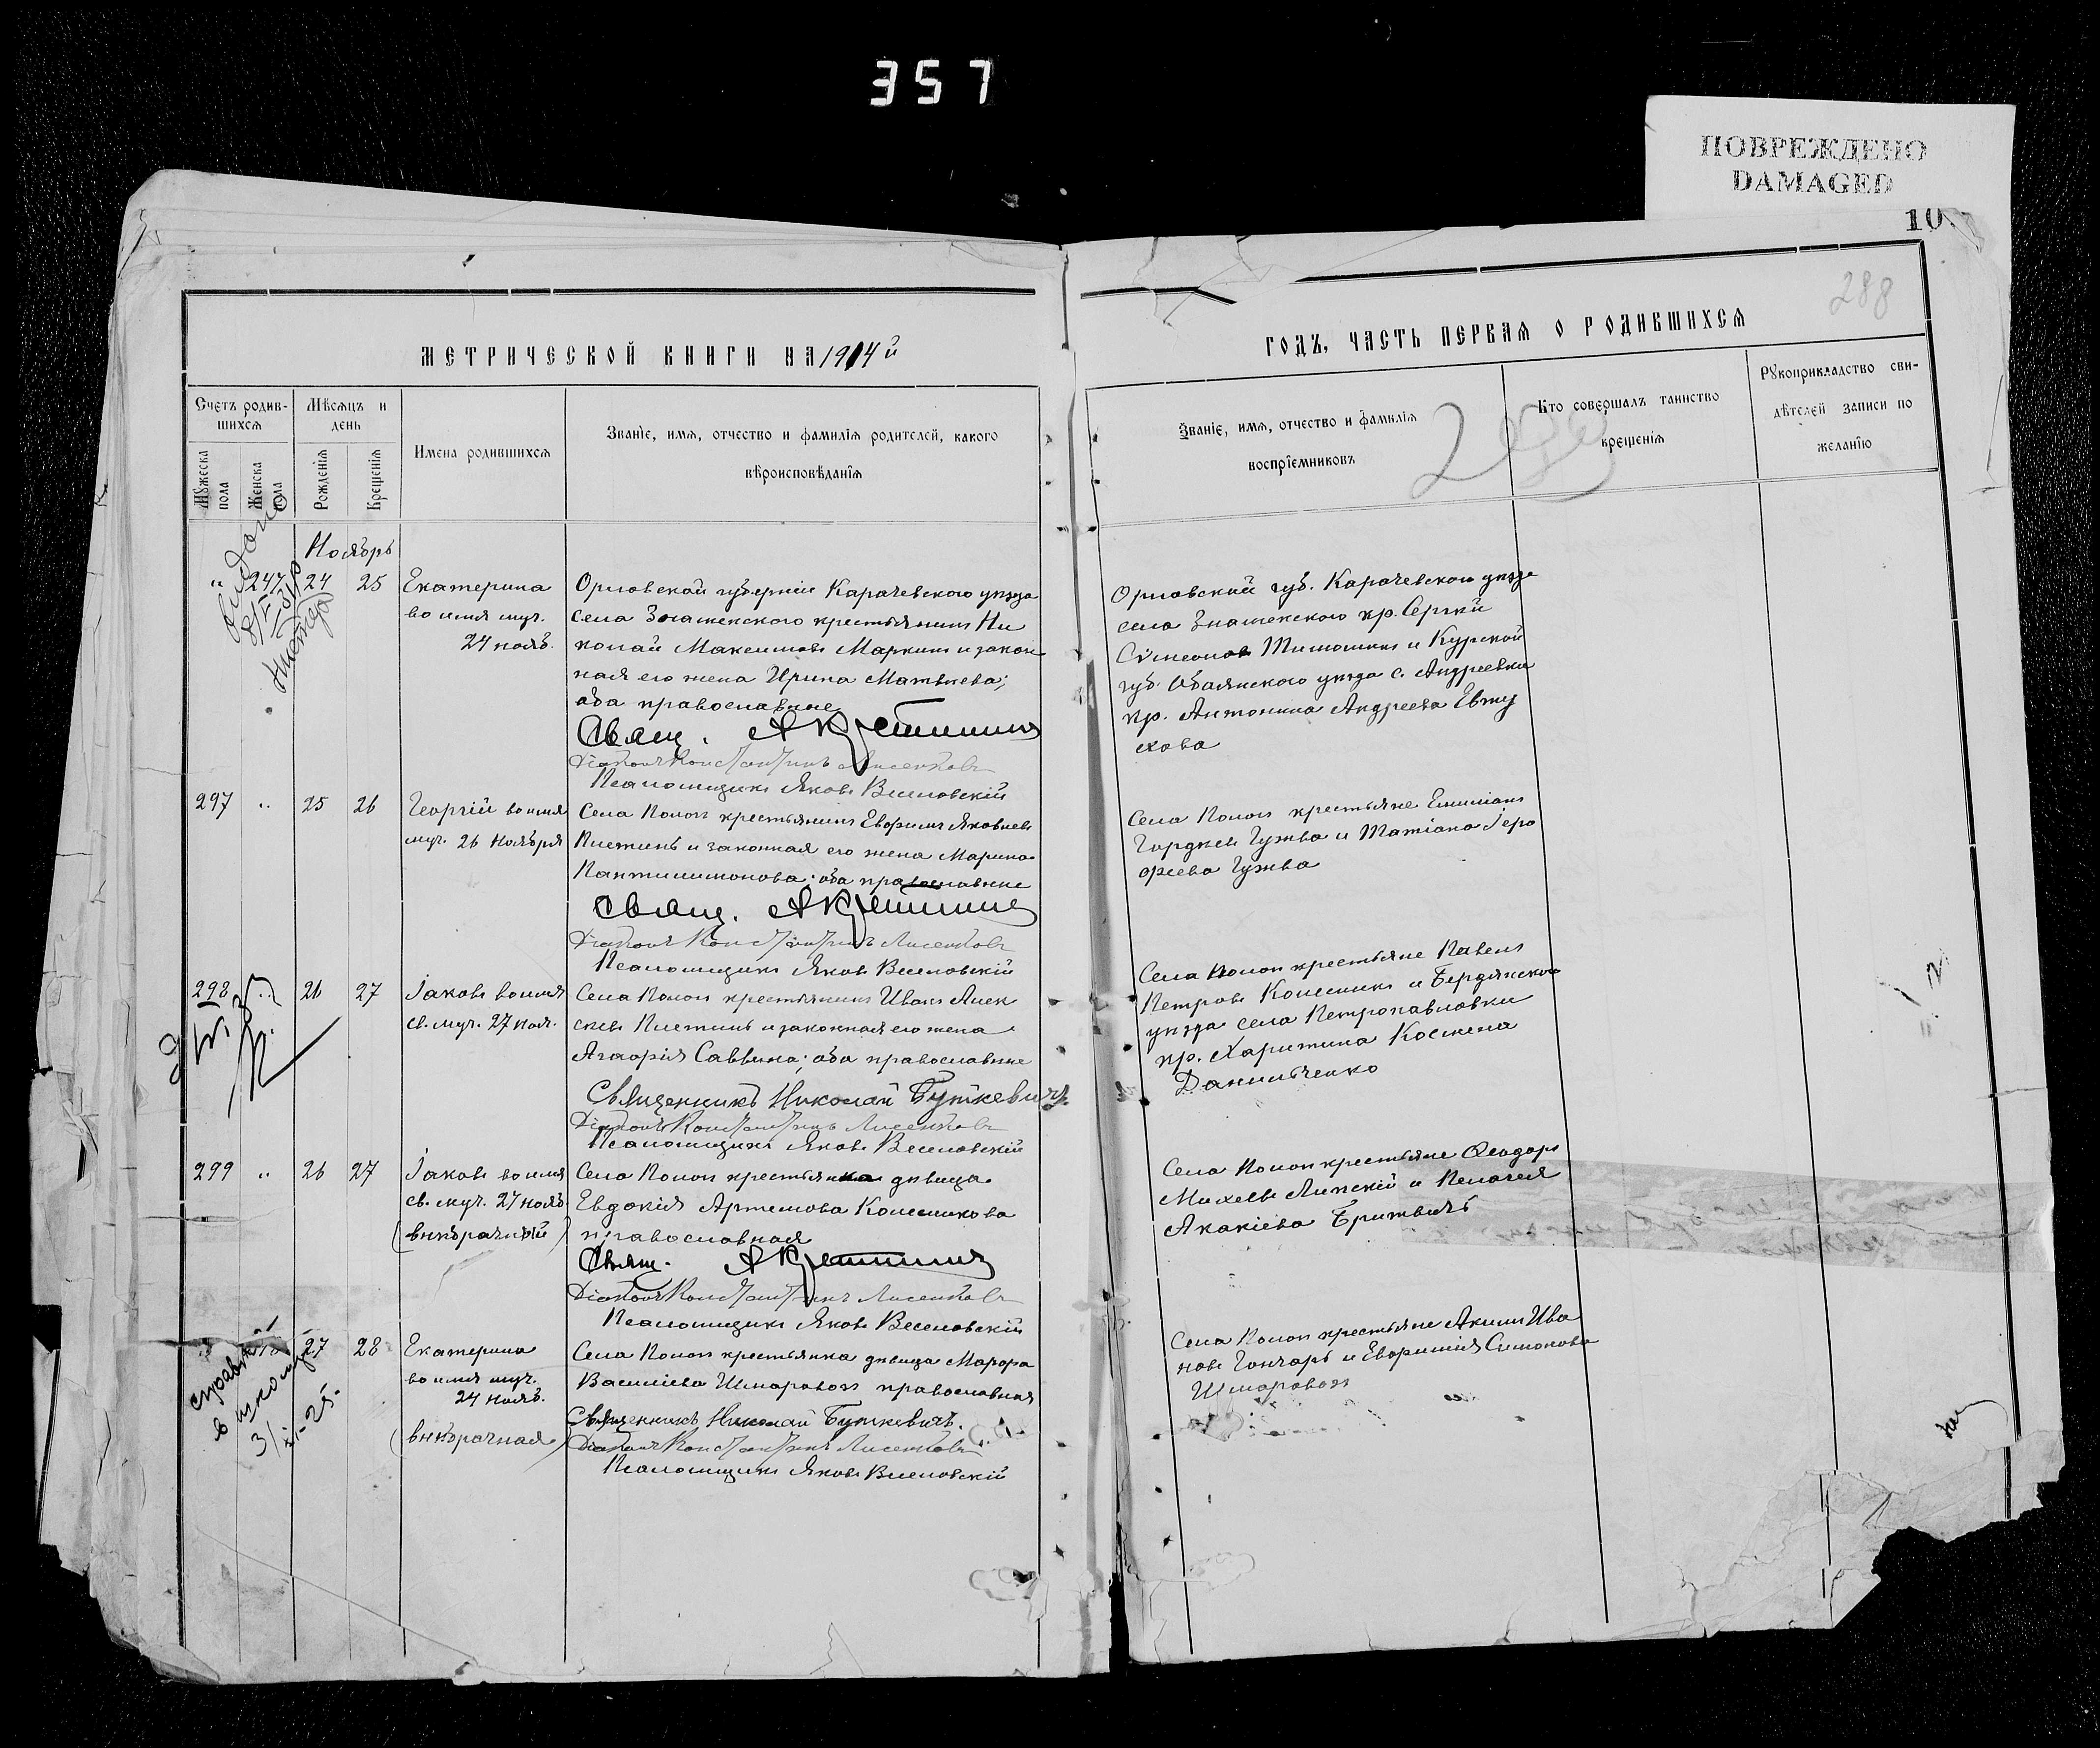 357
ПОВРЕЖДЕНО
DAMAGED
10
288
МЕТРИЧЕСКОЙ КНИГИ НА 1914 й
ГОДЪ, ЧАСТЬ ПЕРВАЯ О РОДИВШИХСЯ
Счетъ родив-
шихся
Мѣсяцъ и
день
Мужеска
пола
Женска
пола
Рожденія
Крещенія
Имена родившихся
Званіе, имя, отчество и фамилія родителей, какого
вѣроисповѣданія
Званіе, имя, отчество и фамилія
воспріемниковъ
Кто совершалъ таинство
крещенія
Рукоприкладство сви-
дѣтелей записи по
желанію
Ноябрь
„ 247 24 25
Екатерина
во имя муч.
24 нояб.
Орловской губерніи Карачевского уѣзда
села Знаменского крестьянинъ Ни
колай Максимовъ Маркинъ и закон
ная его жена Ирина Матвѣева;
оба православные
Свящ.
Діаконъ Константинъ Лисенковъ
Псаломщикъ Яковъ Веселовскій
Орловской губ. Карачевского уѣзда
села Знаменского кр. Сергѣй
Сѵмеоновъ Тимошкин и Курской
губ. Обоянского уѣзда с. Андреевки
кр. Антонина Андреева Евту
хова
297 „ 25 26
Георгій во имя
муч. 26 Ноября
Села Пологъ крестьянинъ Евфимъ Яковлевъ
Плетинь и законная его жена Марина
Пантилимонова; оба православные
Свящ.
Діаконъ Константинъ Лисенковъ
Псаломщикъ Яковъ Веселовскій
Села Пологъ крестьяне Емиліанъ
Гордѣевъ Гужва и Татіана Іеро
феева Гужва
298 „ 26 27
Іаковъ во имя
св. муч. 27 нояб.
Села Пологъ крестьянинъ Иванъ Алек
сѣевъ Плетинь и законная его жена
Агафія Саввина; оба православные
Священникъ Николай Буткевичъ
Діаконъ Константинъ Лисенковъ
Псаломщикъ Яковъ Веселовскій
Села Пологъ крестьяне Павелъ
Петровъ Колесникъ и Бердянского
уѣзда села Петропавловки
кр. Харитина Космена
Данильченко
299 „ 26 27
Іаковъ во имя
св. муч. 27 нояб.
(внѣбрачный)
Села Пологъ крестьянка дѣвица
Евдокія Артемова Колесникова
православная
Свящ.
Діаконъ Константинъ Лисенковъ
Псаломщикъ Яковъ Веселовскій
Села Пологъ крестьяне Ѳеодоръ
Михеевъ Липскій и Пелагея
Акакіева Бритвичъ
27 28
Екатерина
во имя муч.
24 нояб.
(внѣбрачная)
Села Пологъ крестьянка дѣвица Марфа
Василіева Шмаровозъ православная
Священникъ Николай Буткевичъ.
Діаконъ Константинъ Лисенковъ
Псаломщикъ Яковъ Веселовскій
Села Пологъ крестьяне Акимъ Ива
новъ Гончаръ и Евфимія Симонова
Шмаровозъ